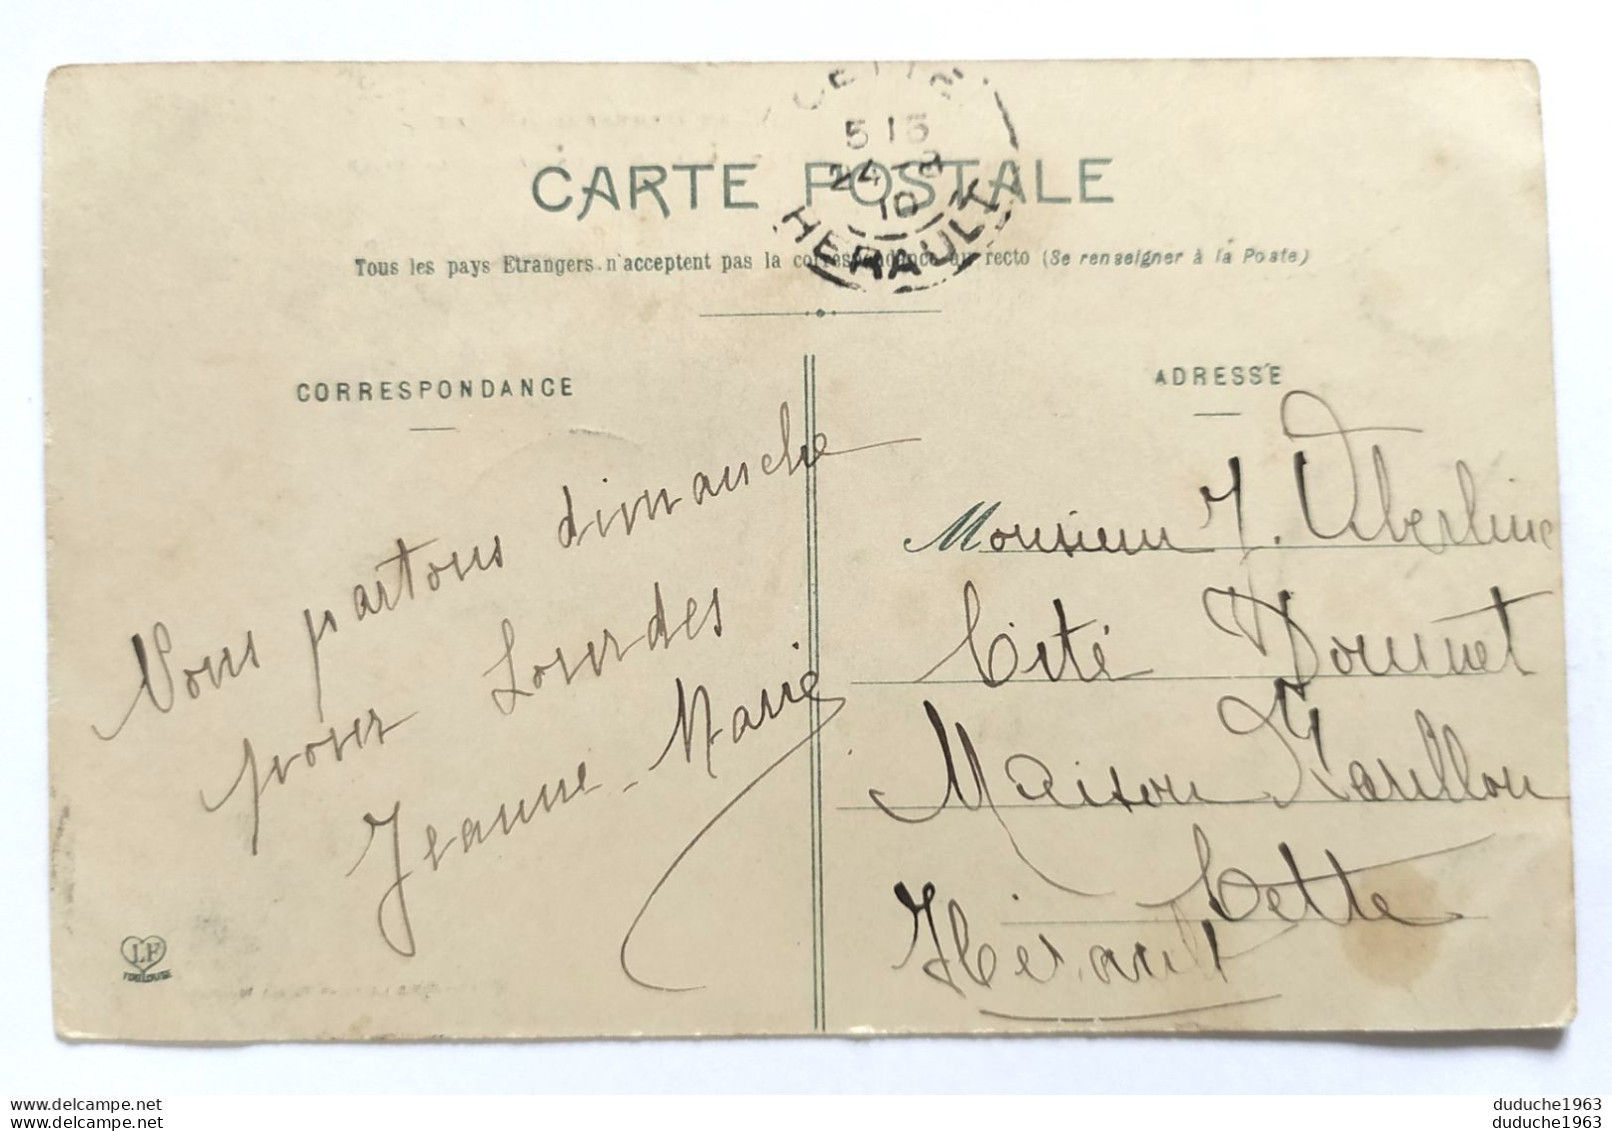 CETTE
5 15
24 -8
10
HERAULT
CARTE POSTALE
Tous les pays Etrangers n'acceptent pas la correspondance au recto (Se renseigner à la Poste)
CORRESPONDANCE
Nous partons dimanche
pour Lourdes
Jeanne-Marie
LF
TOULOUSE
ADRESSE
Monsieur J. Oberline
Cité Doumet
Maison
Cette
Hérault
duduche1963
duduche1963
duduche1963
duduche1963